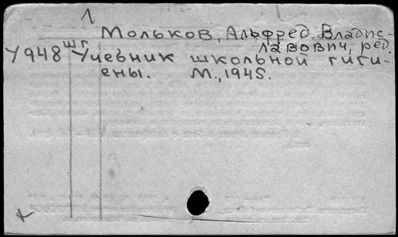 1
Мольков, Альфред Владис-
лавович, ред.
У948 шг Учебник школьной гиги-
ены. М., 1945.